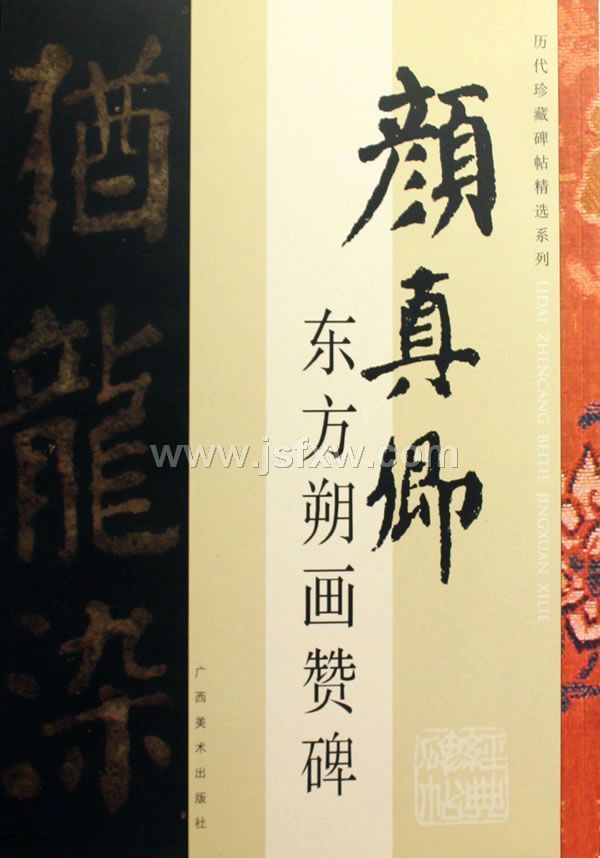 历代珍藏碑帖精选系列
LIDAI ZHENCANG BEITIE JINGXUAN XILIE
顔真卿
东方朔画赞碑
广西美术出版社
猶龍染
www.jsfxw.com
经典
碑帖